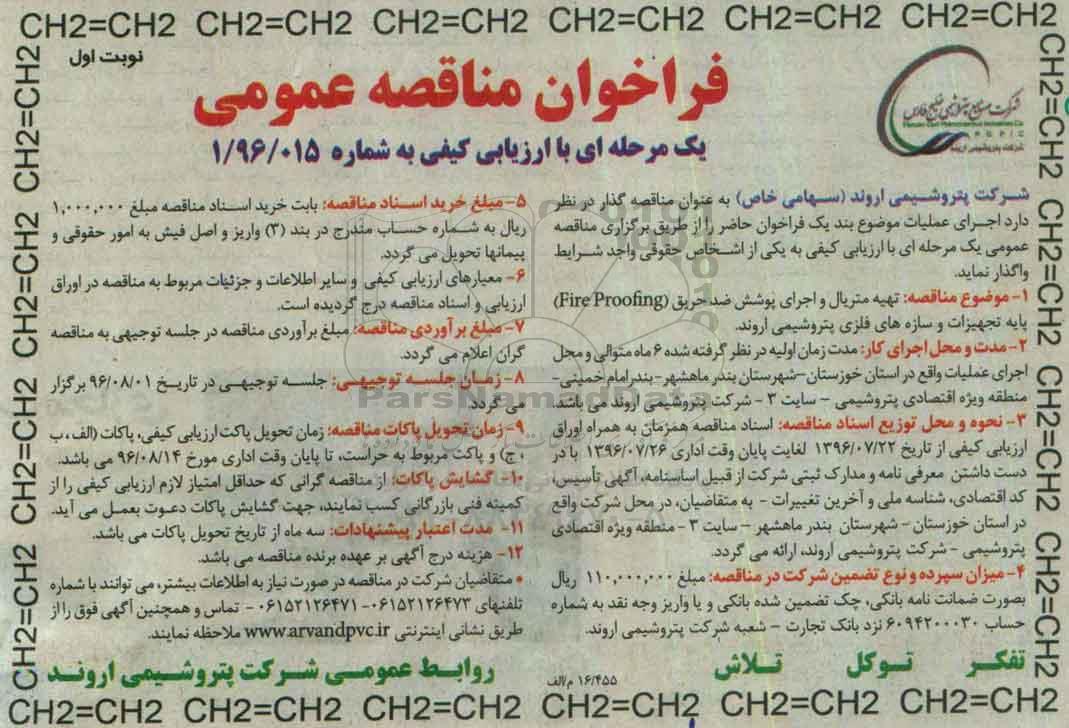 CH2=CH2 CH2=CH2 CH2=CH2 CH2=CH2 CH2=CH2 CH2=CH2
نوبت اول
فراخوان مناقصه عمومی
یک مرحله ای با ارزیابی کیفی به شماره ۱/۹۶/۰۱۵
شرکت صنایع پتروشیمی خلیج فارس
Persian Gulf Petrochemical Industries Co.
PGPIC
شرکت پتروشیمی اروند
شرکت پتروشیمی اروند (سهامی خاص) به عنوان مناقصه گذار در نظر
دارد اجرای عملیات موضوع بند یک فراخوان حاضر را از طریق برگزاری مناقصه
عمومی یک مرحله ای با ارزیابی کیفی به یکی از اشخاص حقوقی واجد شرایط
واگذار نماید.
۱- موضوع مناقصه: تهیه متریال و اجرای پوشش ضد حریق (Fire Proofing)
پایه تجهیزات و سازه های فلزی پتروشیمی اروند.
۲- مدت و محل اجرای کار: مدت زمان اولیه در نظر گرفته شده ۶ ماه متوالی و محل
اجرای عملیات واقع در استان خوزستان-شهرستان بندر ماهشهر -بندرامام خمینی-
منطقه ویژه اقتصادی پتروشیمی - سایت ۳ - شرکت پتروشیمی اروند می باشد.
۳- نحوه و محل توزیع اسناد مناقصه: اسناد مناقصه همزمان به همراه اوراق
ارزیابی کیفی از تاریخ ۱۳۹۶/۰۷/۲۲ لغایت پایان وقت اداری ۱۳۹۶/۰۷/۲۶ با در
دست داشتن معرفی نامه و مدارک ثبتی شرکت از قبیل اساسنامه، آگهی تأسیس،
کد اقتصادی، شناسه ملی و آخرین تغییرات - به متقاضیان، در محل شرکت واقع
در استان خوزستان - شهرستان بندر ماهشهر - سایت ۳ - منطقه ویژه اقتصادی
پتروشیمی - شرکت پتروشیمی اروند، ارائه می گردد.
۴- میزان سپرده و نوع تضمین شرکت در مناقصه: مبلغ ۱۱۰,۰۰۰,۰۰۰ ریال
بصورت ضمانت نامه بانکی، چک تضمین شده بانکی و یا واریز وجه نقد به شماره
حساب ۶۰۹۴۲۰۰۰۳۰ نزد بانک تجارت - شعبه شرکت پتروشیمی اروند.
۵- مبلغ خرید اسناد مناقصه: بابت خرید اسناد مناقصه مبلغ ۱,۰۰۰,۰۰۰
ریال به شماره حساب مندرج در بند (۳) واریز و اصل فیش به امور حقوقی و
پیمانها تحویل می گردد.
۶- معیارهای ارزیابی کیفی و سایر اطلاعات و جزئیات مربوط به مناقصه در اوراق
ارزیابی و اسناد مناقصه درج گردیده است.
۷- مبلغ برآوردی مناقصه: مبلغ برآوردی مناقصه در جلسه توجیهی به مناقصه
گران اعلام می گردد.
۸- زمان جلسه توجیهی: جلسه توجیهی در تاریخ ۹۶/۰۸/۰۱ برگزار
می گردد.
۹- زمان تحویل پاکات مناقصه: زمان تحویل پاکت ارزیابی کیفی، پاکات (الف، ب
، ج) و پاکت مربوط به حراست، تا پایان وقت اداری مورخ ۹۶/۰۸/۱۴ می باشد.
۱۰- گشایش پاکات: از مناقصه گرانی که حداقل امتیاز لازم ارزیابی کیفی را از
کمیته فنی بازرگانی کسب نمایند، جهت گشایش پاکات دعوت بعمل می آید.
۱۱- مدت اعتبار پیشنهادات: سه ماه از تاریخ تحویل پاکات می باشد.
۱۲- هزینه درج آگهی بر عهده برنده مناقصه می باشد.
• متقاضیان شرکت در مناقصه در صورت نیاز به اطلاعات بیشتر، می توانند با شماره
تلفنهای ۰۶۱۵۲۱۲۶۴۷۳-۰۶۱۵۲۱۲۶۴۷۱ - تماس و همچنین آگهی فوق را از
طریق نشانی اینترنتی www.arvandpvc.ir ملاحظه نمایند.
تفکر توکل تلاش
۱۶/۴۵۵ م/الف
روابط عمومی شرکت پتروشیمی اروند
ParsNamadData
CH2=CH2 CH2=CH2 CH2=CH2 CH2=CH2 CH2=CH2 CH2=CH2
CH2=CH2 CH2=CH2 CH2=CH2 CH2=CH2
CH2=CH2 CH2=CH2 CH2=CH2 CH2=CH2